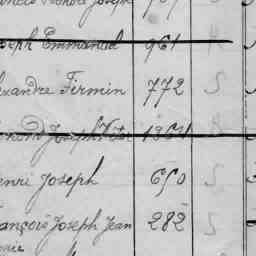 Joseph
seph Emmanuel 961
exandre Firmin 772 S
Joseph Victor 1364
enri Joseph 650 S
ançois Joseph Jean 282 S